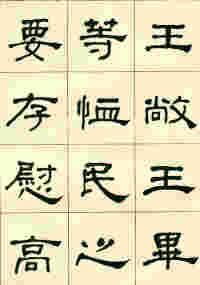 王敞王畢
等恤民之
要存慰高